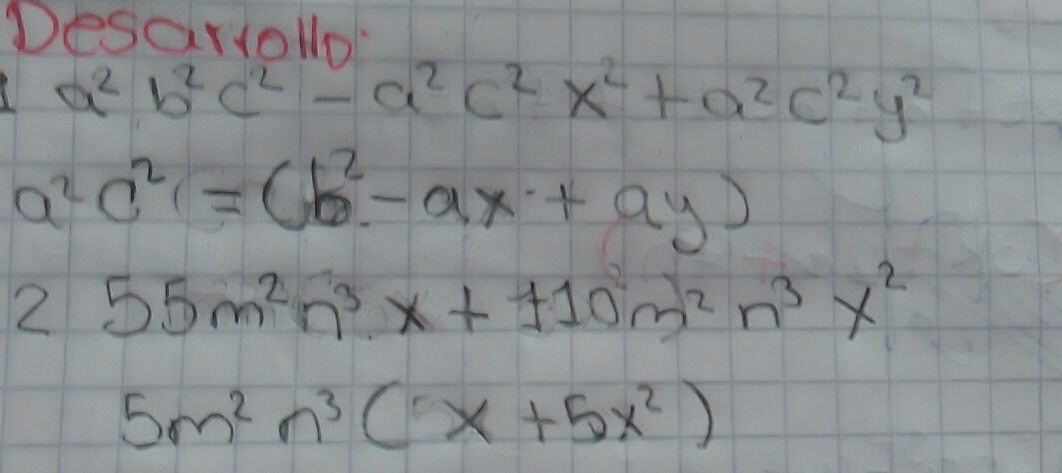 Desarrollo:
1 a² b² c² - a² c² x² + a² c² y²
a² c² (= (b² - ax + ay)
2 55m² n³ x + 110m² n³ x²
5m² n³ (x + 5x²)